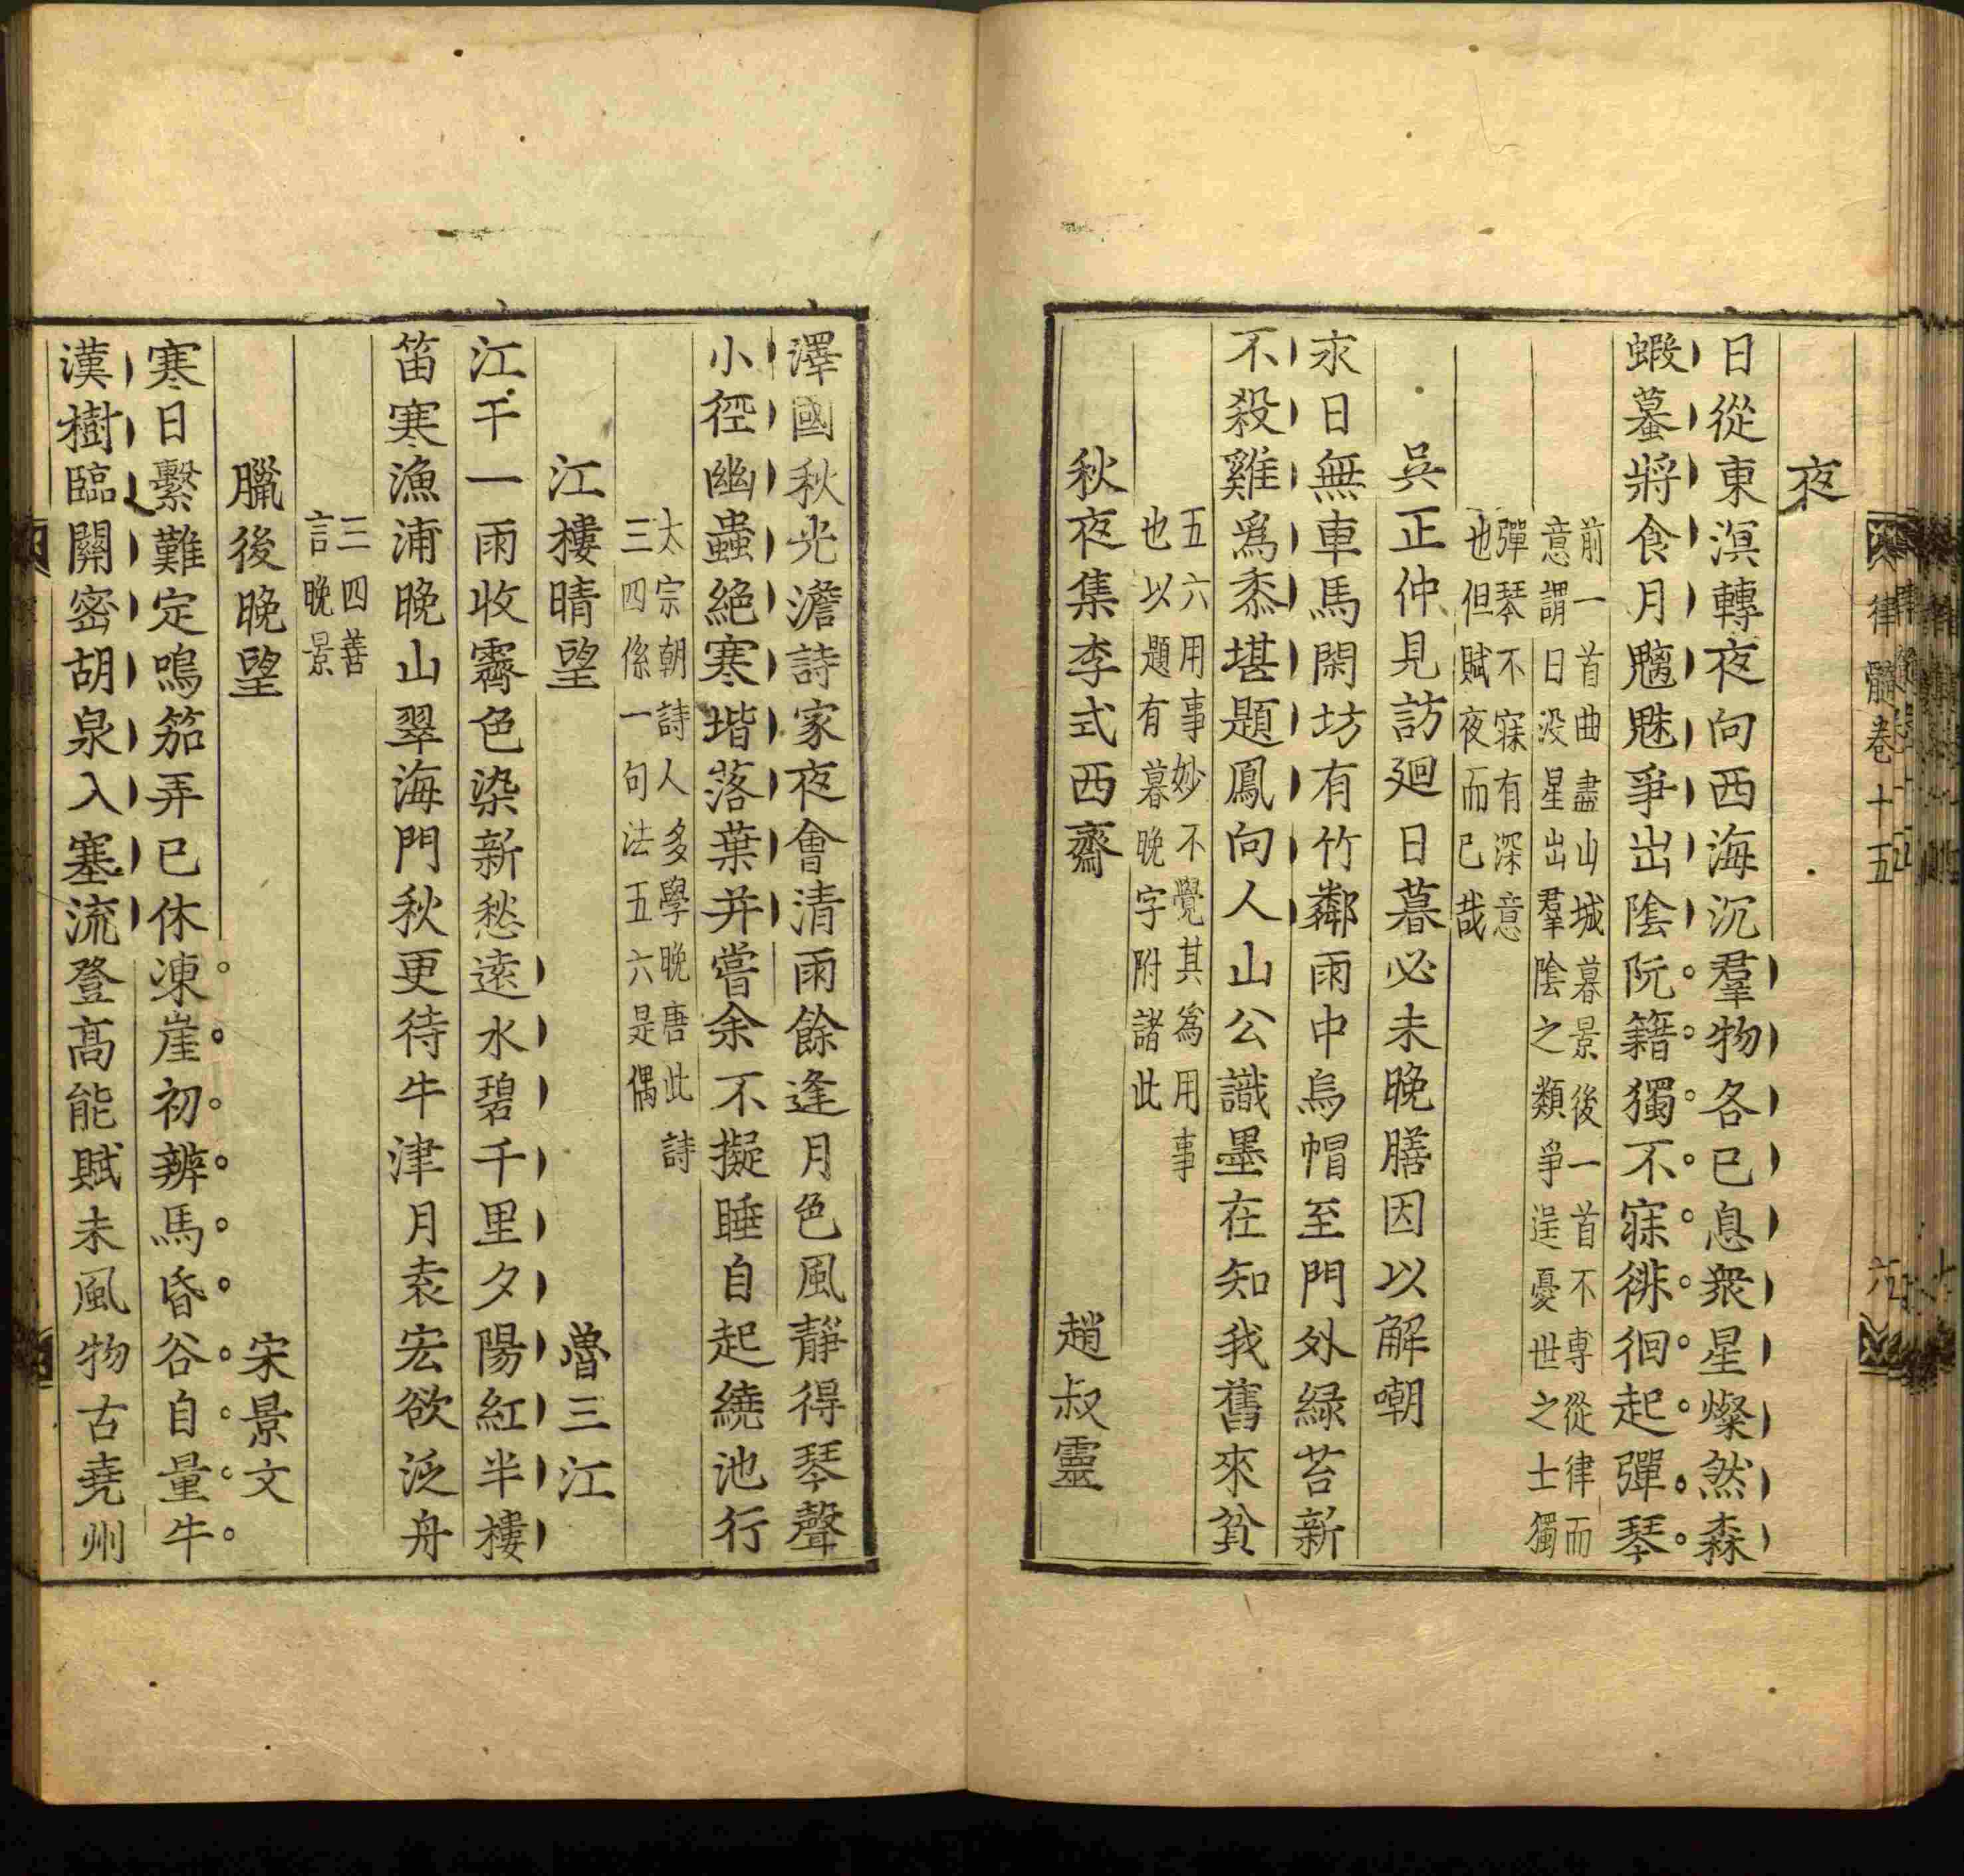 律髓卷十五
六
夜
日從東溟轉夜向西海沉羣物各已息衆星燦然森
蝦蟇將食月魑魅爭出陰阮籍獨不寐徘徊起彈琴
前一首曲盡山城暮景後一首不專從律而
意謂日没星出羣陰之類爭逞憂世之士獨
彈琴不寐有深意
也但賦夜而已哉
吳正仲見訪廻日暮必未晚膳因以解嘲
永日無車馬閑坊有竹鄰雨中烏帽至門外緑苔新
不殺雞爲黍堪題鳳向人山公識墨在知我舊來貧
五六用事妙不覺其爲用事
也以題有暮晚字附諸此
秋夜集李式西齋 趙叔靈
澤國秋光澹詩家夜會清雨餘逢月色風靜得琴聲
小徑幽蟲絕寒堦落葉并嘗余不擬睡自起繞池行
太宗朝詩人多學晚唐此詩
三四係一句法五六是偶
江樓晴望 曾三江
江干一雨收霽色染新愁遠水碧千里夕陽紅半樓
笛寒漁浦晚山翠海門秋更待牛津月袁宏欲泛舟
三四善
言晚景
臘後晚望 宋景文
寒日繫難定鳴笳弄已休凍崖初辨馬昏谷自量牛
漢樹臨關密胡泉入塞流登高能賦未風物古堯州